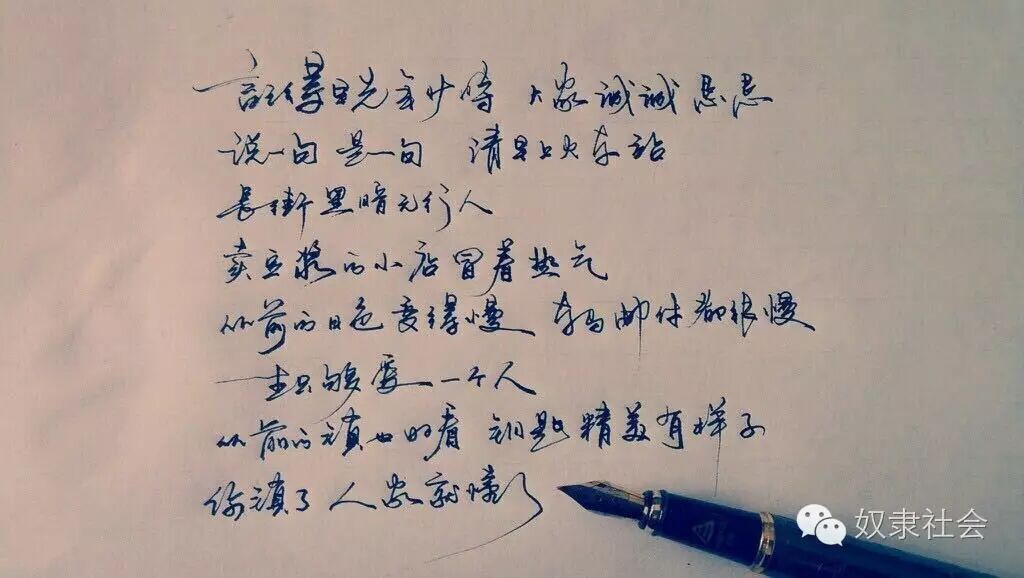 记得早先年少时 大家诚诚恳恳
说一句 是一句 清早上火车站
长街黑暗无行人
卖豆浆的小店冒着热气
从前的日色变得慢 车马邮件都很慢
一生只够爱一个人
从前的锁也好看 钥匙精美有样子
你锁了 人家就懂了
奴隶社会